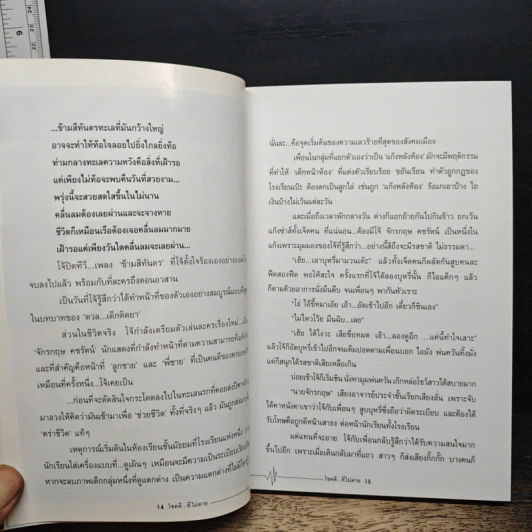 ...ข้ามสีทันดรทะเลที่มันกว้างใหญ่
อาจจะทำให้ท้อใจลอยไปยิ่งไกลยิ่งท้อ
ท่ามกลางทะเลความหวังคือสิ่งที่เฝ้ารอ
แค่เพียงไม่ท้อจะพบคืนวันที่สวยงาม...
พรุ่งนี้จะสวยสดใสขึ้นในไม่นาน
คลื่นลมต้องเลยผ่านและจะจางหาย
ชีวิตก็เหมือนเรือต้องเจอคลื่นลมมากมาย
เฝ้ารอแค่เพียงวันใดคลื่นลมจะเลยผ่าน...
โจ้ปิดทีวี...เพลง ‘ข้ามสีทันดร’ ที่โจ้ตั้งใจร้องเอง
จบลงไปแล้ว พร้อมกับที่ละครถึงตอนอวสาน
เป็นวันที่โจ้รู้สึกว่าได้ทำหน้าที่ของตัวเองอย่างสมบูรณ์แบบที่สุด
ในบทบาทของ ‘ดวล...เด็กติดยา’
ส่วนในชีวิตจริง โจ้กำลังเตรียมตัวเล่นละครเรื่องใหม่...เป็น
‘จักรกฤษ คชรัตน์’ นักแสดงที่กำลังทำหน้าที่ตามความสามารถ
และที่สำคัญคือหน้าที่ ‘ลูกชาย’ และ ‘พี่ชาย’ ที่เป็นคนดีของครอบครัว
เหมือนที่ครั้งหนึ่ง...โจ้เคยเป็น
...ก่อนที่จะตัดสินใจกระโดดลงไปในทะเลนรกที่คอย
มาลวงให้คิดว่ามันเข้ามาเพื่อ ‘ช่วยชีวิต’ ทั้งที่จริงๆ แล้ว มันถูกส่ง
‘คร่าชีวิต’ แท้ๆ
เหตุการณ์เริ่มต้นในห้องเรียนชั้นมัธยมที่โรงเรียนแห่งหนึ่ง
นักเรียนใส่เครื่องแบบที่...ดูเผินๆ เหมือนจะมีความเป็นระเบียบเรียบร้อย
หากจะลบภาพเด็กกลุ่มหนึ่งที่ดูแตกต่าง เป็นความแตกต่างที่ไม่มีใคร
14 โชคดี...ที่ไม่ตาย
นั่นละ...คือจุดเริ่มต้นของความเลวร้ายที่สุดของสังคมเมือง
เพื่อนในกลุ่มที่แยกตัวเองว่าเป็น ‘แก๊งหลังห้อง’ มักจะมีพฤติกรรม
ที่ทำให้ ‘เด็กหน้าห้อง’ ที่แต่งตัวเรียบร้อย ขยันเรียน ทำตัวถูกกฎของ
โรงเรียนเป๊ะ ต้องตกเป็นลูกไล่ เช่นถูก ‘แก๊งหลังห้อง’ รังแกเอาบ้าง ไถ
เงินบ้างไม่เว้นแต่ละวัน
และเมื่อถึงเวลาพักกลางวัน ต่างก็แยกย้ายกันไปกินข้าว ยกเว้น
แก๊งซ่าส์ทั้งเจ็ดคน ที่แน่นอน...ต้องมีโจ้ จักรกฤษ คชรัตน์ เป็นหนึ่งใน
แก๊งเพราะมุมมองของโจ้ที่รู้สึกว่า...อย่างนี้สิถึงจะมีรสชาติ ไม่ธรรมดา...
“เฮ้ย...เอาบุหรี่มามวนเด๊ะ” แล้วทั้งเจ็ดคนก็ผลัดกันสูบคนละ
ฟืดสองฟืด พอให้สะใจ ครั้งแรกที่โจ้ได้ลองบุหรี่นั้น ก็ไอแค็กๆ แล้ว
ก็ตามด้วยอาการนั่งมึนตึบ จนเพื่อนๆ พากันหัวเราะ
“โธ่ ไอ้ขี้หมาเอ๊ย เอ้า...อัดเข้าไปอีก เดี๋ยวก็ชินเอง”
“ไม่ไหวโว้ย มึนฉิบ...เลย”
“เฮ้ย ได้ไงวะ เสียชื่อหมด เอ้า...ลองดูอีก ...แค่นี้ทำใจเสาะ”
แล้วโจ้ก็อัดบุหรี่เข้าไปอีกจนเต็มปอดตามเพื่อนบอก ไอมั่ง พ่นควันทิ้งมั่ง
แต่ก็สนุกได้รสชาติเสียเหลือเกิน
บ่อยเข้าโจ้ก็เริ่มชิน นั่งหามุมพ่นควัน เก๊กหล่อโชว์สาวได้สบายมาก
“นายจักรกฤษ” เสียงอาจารย์ประจำชั้นเรียกเสียงลั่น เพราะจับ
ได้คาหนังคาเขาว่าโจ้กับเพื่อนๆ สูบบุหรี่ซึ่งถือว่าผิดระเบียบ และต้องได้
รับโทษคือถูกตีหน้าเสาธง ต่อหน้านักเรียนทั้งโรงเรียน
แต่แทนที่จะอาย โจ้กับเพื่อนกลับรู้สึกว่าได้รับความสนใจมาก
ขึ้นไปอีก เพราะเมื่อเดินกลับมาที่แถว สาวๆ ก็ส่งเสียงกิ๊กกั๊ก บางคนก็
โชคดี...ที่ไม่ตาย 15